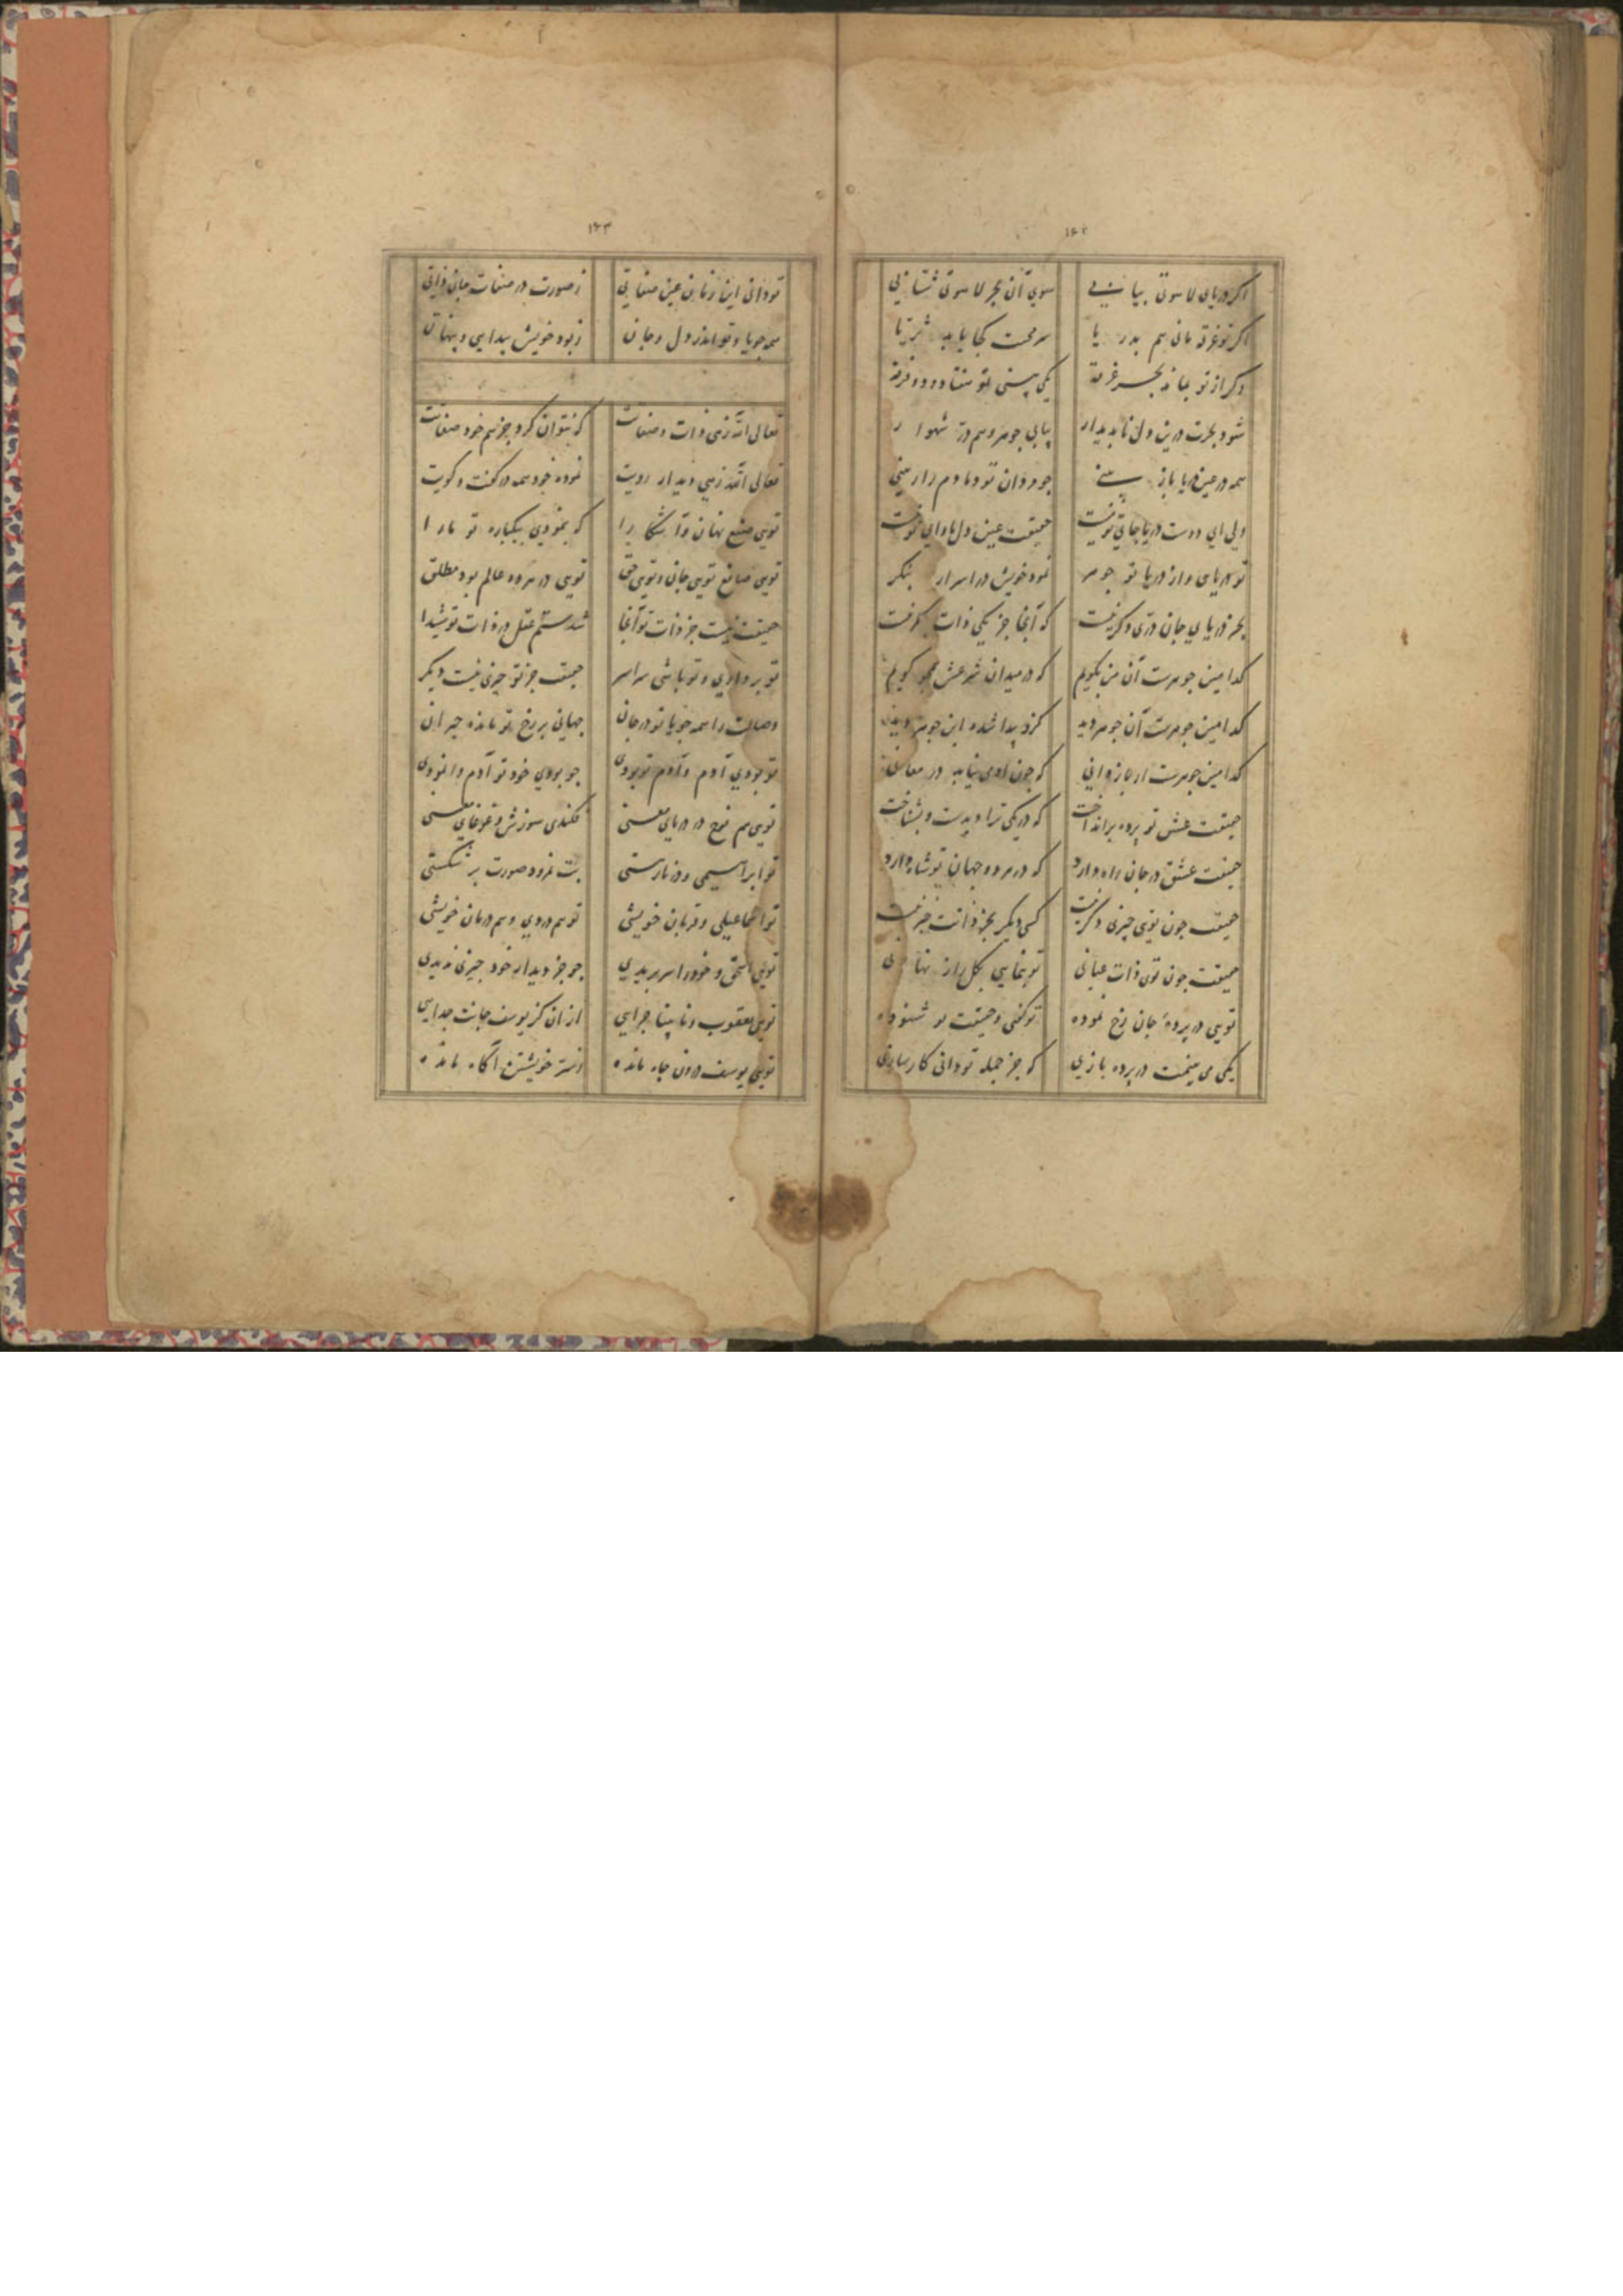 ۱۶۲
اکر دریای لاهوتی بیابی سوی آن بحر لاهوتی شتابی
اکر تو غرقه مانی هم بدریا سر محت کجا یابد ثریا
دکر از تو بماند بحر غرقه یکی بینی تو هفتاد و دو فرقه
شود بحرت درین دل ناپدیدار بیابی جوهر و هم در شهوار
همه در عین دریا باز بینی جو مردان تو دمادم راز بینی
ولی ای دوست دریا جای تو نیست حقیقت عین دل ماوای تو نیست
تو دریایی و از دریا تو جوهر نمود خویش در اسرار بنکر
بجز دریای جان دری دکر نیست که آنجا جز یکی ذات
کدامین جوهرست آن من بکویم که در میدان شرعش همجو کویم
کدامین جوهرست آن جوهر دید کزو پیدا شده این جوهر دید
کدامین جوهرست ار باز دانی که جون اویی نیابد در معانی
حقیقت عشق تو پرده برانداخت که در یکی ترا دیدست و بشناخت
حقیقت عشق در جان راه دارد که در هر دو جهان تو شاه دارد
حقیقت جون تویی چیزی دکر نیست کسی دیکر بجز ذاتت خبر نیست
حقیقت جون توی ذات عیانی تو بنمایی بکل راز نهانی
تویی در پرده جان رخ نموده تو کفتی و حقیقت تو شنوده
یکی می بینمت در پرده بازی که جز جمله تو دانی کارسازی
۱۶۳
تو دانی این زمان عین صفاتی ز صورت در صفات جانِ ذاتی
همه جویا و تو اندر دل و جان ز بود خویش پیدایی و پنهان
تعالی الله زهی ذات و صفاتت که نتوان کرد جز هم خود صفاتت
تعالی الله زهی دیدار رویت نموده خود همه در کفت و کویت
تویی صنع نهان و آشکارا که بنمودی بیکباره تو مارا
تویی صانع تویی جان و تویی حق تویی در هر دو عالم بود مطلق
حقیقت نیست جز ذات تو آنجا شدستم عقل در ذات تو شیدا
تو بردادی و تو باشی سراسر حقیقت جز تو چیزی نیست دیکر
وصالت را همه جویا تو در جان جهانی بر رخ تو مانده حیران
تو بودی آدم و آدم تو بودی جو بودی خود تو آدم وانمودی
تویی هم نوح در دریای معنی فکندی سوزش و غوغای معنی
تو ابراهیمی و در نار هستی بت نمرود صورت بر شکستی
تو اسماعیلی و قربان خویشی تو هم دردی و هم درمان خویشی
تویی اسحق و خود را سر بریدی جو جز دیدار خود چیزی ندیدی
تویی یعقوب و نابینا جرایی از آن کز یوسف جانت جدایی
تویی یوسف درون جاه مانده ز سر خویشتن آکاه مانده